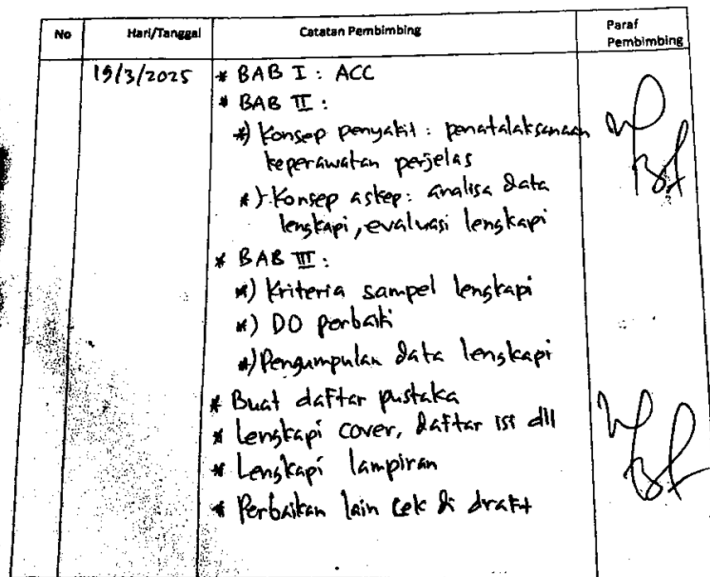 No Hari/Tanggal Catatan Pembimbing Paraf Pembimbing
19/3/2025 * BAB I : ACC
* BAB II :
*) Konsep penyakit : penatalaksanaan
keperawatan perjelas
*) Konsep askep : analisa data
lengkapi, evaluasi lengkapi
* BAB III :
*) Kriteria sampel lengkapi
*) DO perbaiki
*) Pengumpulan data lengkapi
* Buat daftar pustaka
* Lengkapi cover, daftar isi dll
* Lengkapi lampiran
* Perbaikan lain cek di draft